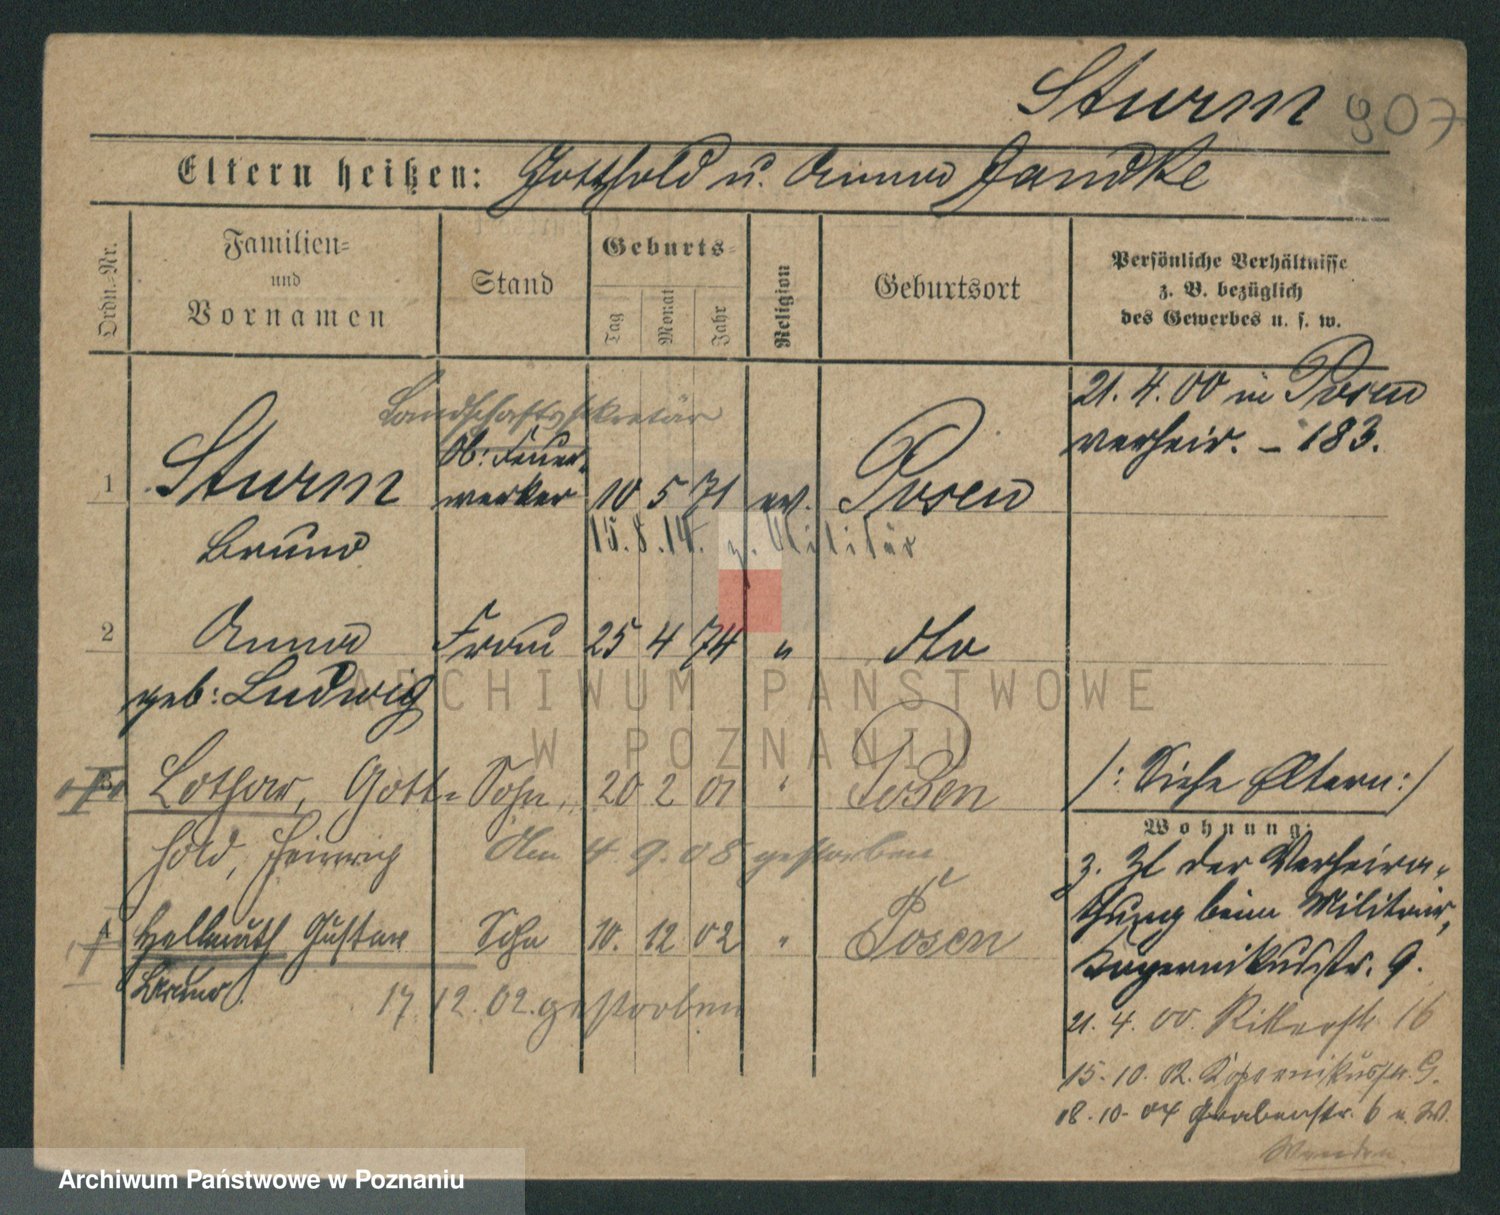 Sturm 907
Eltern heißen: Gotthold u. Anna Jandke
Ordn.-Nr.
Familien-
und
Vornamen
Stand
Geburts-
Tag
Monat
Jahr
Religion
Geburtsort
Persönliche Verhältnisse
z. B. bezüglich
des Gewerbes u. s. w.
Landschaftssekretär
1 Sturm Ob: Feuer-
werker 10 5 71 ev. Posen
Bruno 15. 8. 14. z. Militär
21. 4. 00 in Posen
verheir. - 183.
2 Anna Frau 25 4 74 " dto
geb: Ludwig
3 Lothar, Gott- Sohn 20 2 01 " Posen
hold, Heinrich Am 4 9. 08 gestorben
4 Hellmuth Gustav Sohn 10. 12 02 " Posen
Bruno 17 12. 02. gestorben
/: Siehe Eltern :/
Wohnung:
z. Zt der Verheira-
thung beim Militair,
Kopernikusstr. 9.
21. 4. 00. Ritterstr. 16
15. 10. 02. Kopernikusstr. 9.
18. 10. 04 Grabenstr. 6 u. W.
ARCHIWUM PAŃSTWOWE
W POZNANIU
Archiwum Państwowe w Poznaniu